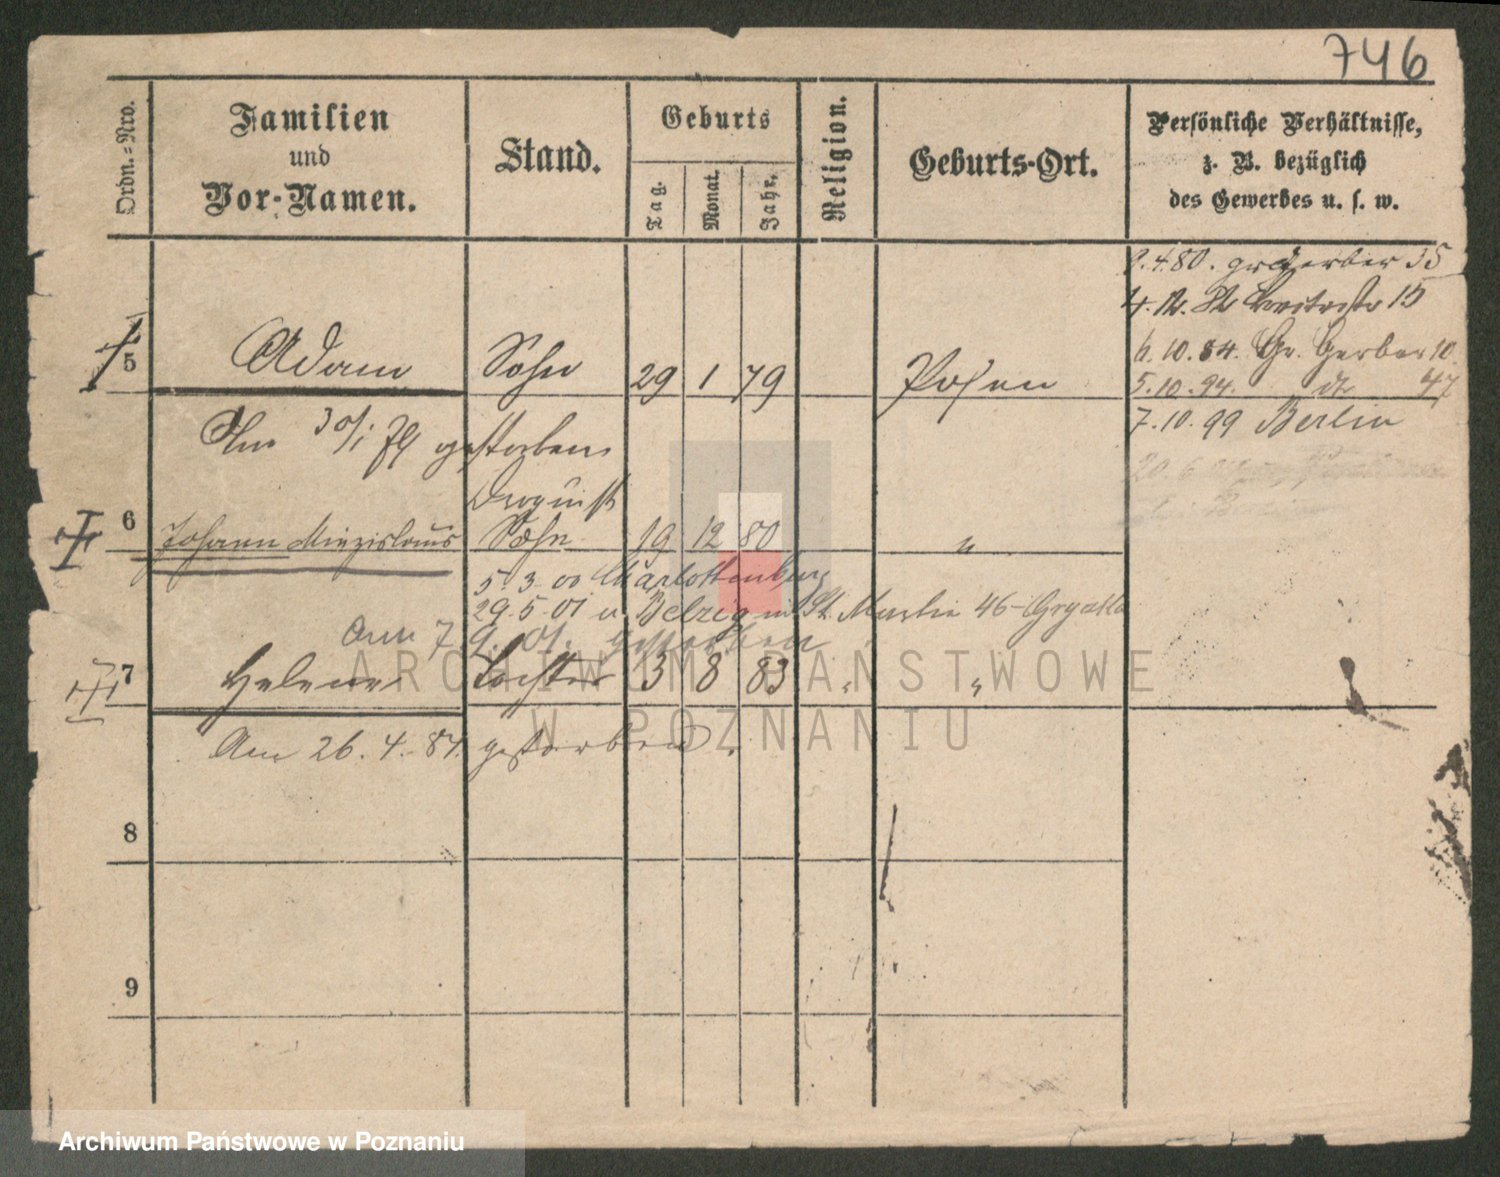 746
Ordn.-Nro.
Familien
und
Vor-Namen.
Stand.
Geburts
Tag.
Monat.
Jahr.
Religion.
Geburts-Ort.
Persönliche Verhältnisse,
z. B. bezüglich
des Gewerbes u. s. w.
.4.80. gr Gerber 35
4.12. 15
5 Adam Sohn 29 1 79 Posen
6.10.84. Gr. Gerber 10.
5.10.94. 47
7.10.99 Berlin
Am 30/1 79 gestorben
Droguist
6 Johann Miezislaus Sohn 19 12 80 "
5.3.00 Charlottenburg
29.5.01 u. Belzig St. Martin 46
Am 7. 9. 01. gestorben
7 Helene Tochter 3 8 83 " "
Am 26.4.84. gestorben.
8
9
ARCHIWUM PAŃSTWOWE
W POZNANIU
Archiwum Państwowe w Poznaniu